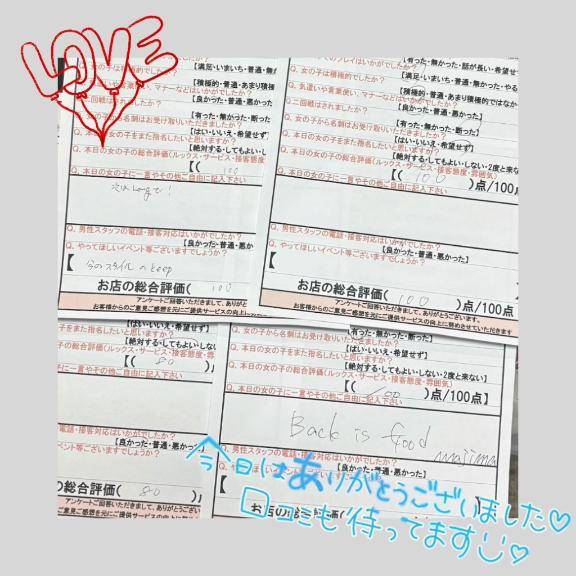 LOVE
Q. 女の子は積極的でしたか？
【満足・いまいち・普通・無
【積極的・普通・あまり積極
マナーなどはいかがでしたか？
【良かった・普通・悪かった】
二回戦はされましたか？
【有った・無かった・断った】
Q. 女の子から名刺はお受け取りいただきましたか？
【はい・いいえ・希望せず】
Q. 本日の女の子をまた指名したいと思いますか？
【絶対する・してもよい・しない
Q. 本日の女の子の総合評価（ルックス・サービス・接客態度
【( 100
Q. 本日の女の子に一言やその他ご自由に記入下さい
次はLongで!
Q. 男性スタッフの電話・接客対応はいかがでしたか？
【良かった・普通・悪か
Q. やってほしいイベント等ございますでしょうか？
今のスタイルのkeep
お店の総合評価( 100
アンケートご回答いただきまして、ありがと
お客様からのご意見ご感想を元にご提供サービスの向上
プレイはいかがでしたか？
【有った・無かった・話が長い・希望せず
Q. 女の子は積極的でしたか？
【満足・いまいち・普通・無かった・やる
Q. 気遣いや言葉使い、マナーなどはいかがでしたか？
【積極的・普通・あまり積極的ではなか
Q. 二回戦はされましたか？
【良かった・普通・悪かった】
Q. 女の子から名刺はお受け取りいただきましたか？
【有った・無かった・断った】
Q. 本日の女の子をまた指名したいと思いますか？
【はい・いいえ・希望せず】
Q. 本日の女の子の総合評価（ルックス・サービス・接客態度、雰囲気）
【絶対する・してもよい・しない・2度と来な
【( 100 )点/100点
Q. 本日の女の子に一言やその他ご自由に記入下さい
Q. 男性スタッフの電話・接客対応はいかがでしたか？
【良かった・普通・悪かった】
Q. やってほしいイベント等ございますでしょうか？
お店の総合評価( 100 )点/100点
アンケートご回答いただきまして、ありがとうございます。
お客様からのご意見ご感想を元にご提供サービスの向上に努めさせていただきます
【はい・いいえ・希望せず】
女の子をまた指名したいと思いますか？
【絶対する・してもよい・しない
女の子の総合評価（ルックス・サービス・接客態度、雰囲
【( 80 )
女の子に一言やその他ご自由に記入下さい
電話・接客対応はいかがでしたか？
【良かった・普通・悪かった】
イベント等ございますでしょうか？
の総合評価( 80 )
アンケートご回答いただきまして、ありがとうご
ご意見ご感想を元にご提供サービスの向上に
【有った・無かった・断った】
Q. 女の子から名刺はお受け取りいただきましたか？
【はい・いいえ・希望せず】
Q. 本日の女の子をまた指名したいと思いますか？
【絶対する・してもよい・しない・2度と来ない】
Q. 本日の女の子の総合評価（ルックス・サービス・接客態度、雰囲気）
【( 100 )点/100点】
Q. 本日の女の子に一言やその他ご自由に記入下さい
Back is good
majima
Q. 男性スタッフの電話・接客対応はいかがでしたか？
【良かった・普通・悪かった】
お店の総合評価(
今日はありがとうございました♡
口コミも待ってます♡